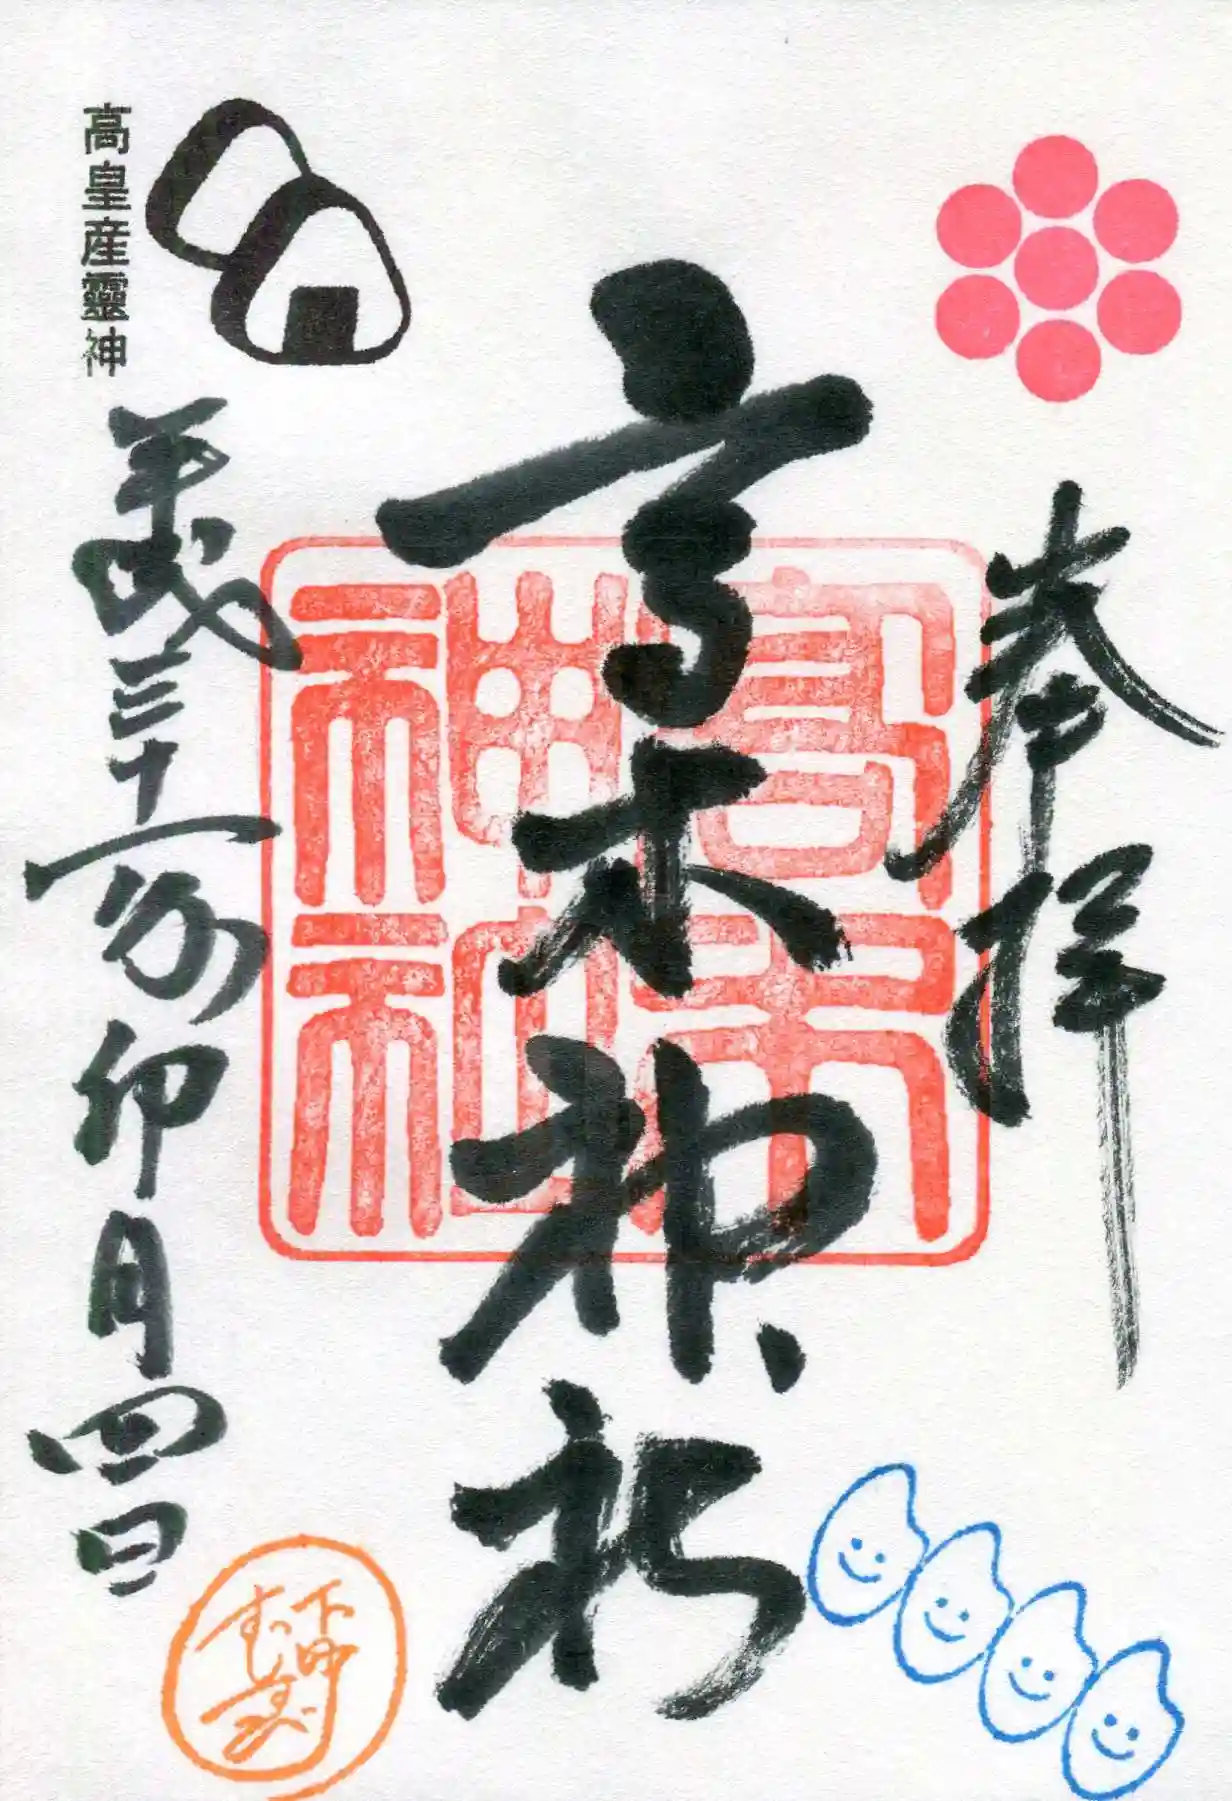 奉拝
高木神社
高木
神社
高皇産靈神
平成三十一年卯月四日